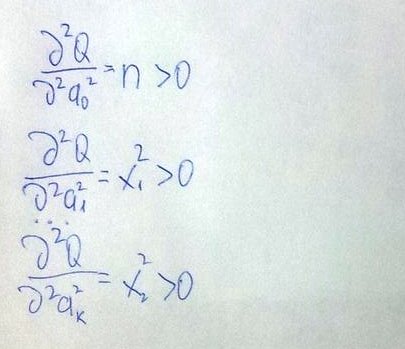 ∂²Q/∂²a₀² = n > 0
∂²Q/∂²a₁² = x₁² > 0
...
∂²Q/∂²aₖ² = x₂² > 0